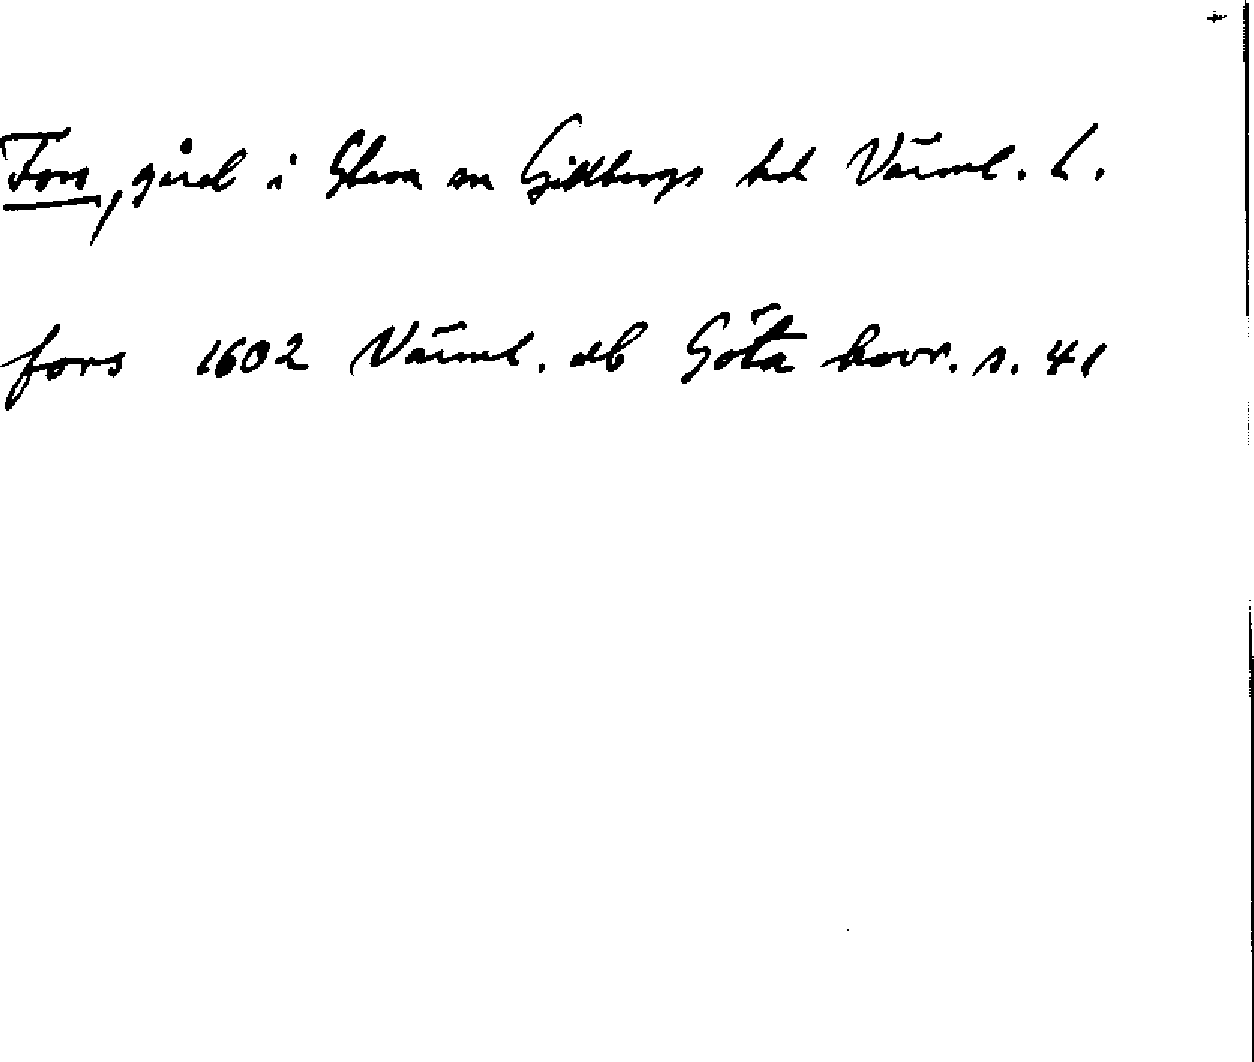 Fors, gård i Glava sn Gillbergs hd Värml. L.
fors 1602 Värml. db Göta hovr. s. 41